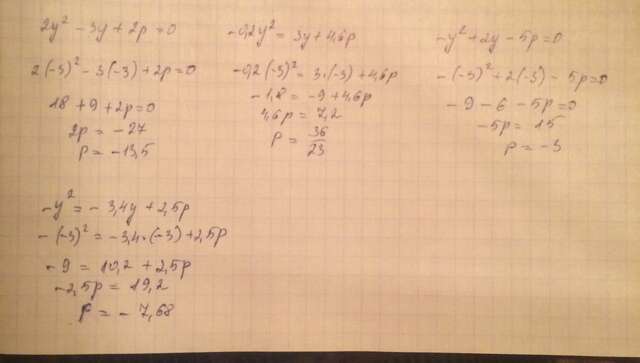 2y² - 3y + 2p = 0
2(-3)² - 3(-3) + 2p = 0
18 + 9 + 2p = 0
2p = -27
p = -13,5
-0,2y² = 3y + 4,6p
-0,2(-3)² = 3·(-3) + 4,6p
-1,8 = -9 + 4,6p
4,6p = 7,2
p = 36/23
-y² + 2y - 5p = 0
-(-3)² + 2(-3) - 5p = 0
-9 - 6 - 5p = 0
-5p = 15
p = -3
-y² = -3,4y + 2,5p
-(-3)² = -3,4·(-3) + 2,5p
-9 = 10,2 + 2,5p
-2,5p = 19,2
p = -7,68